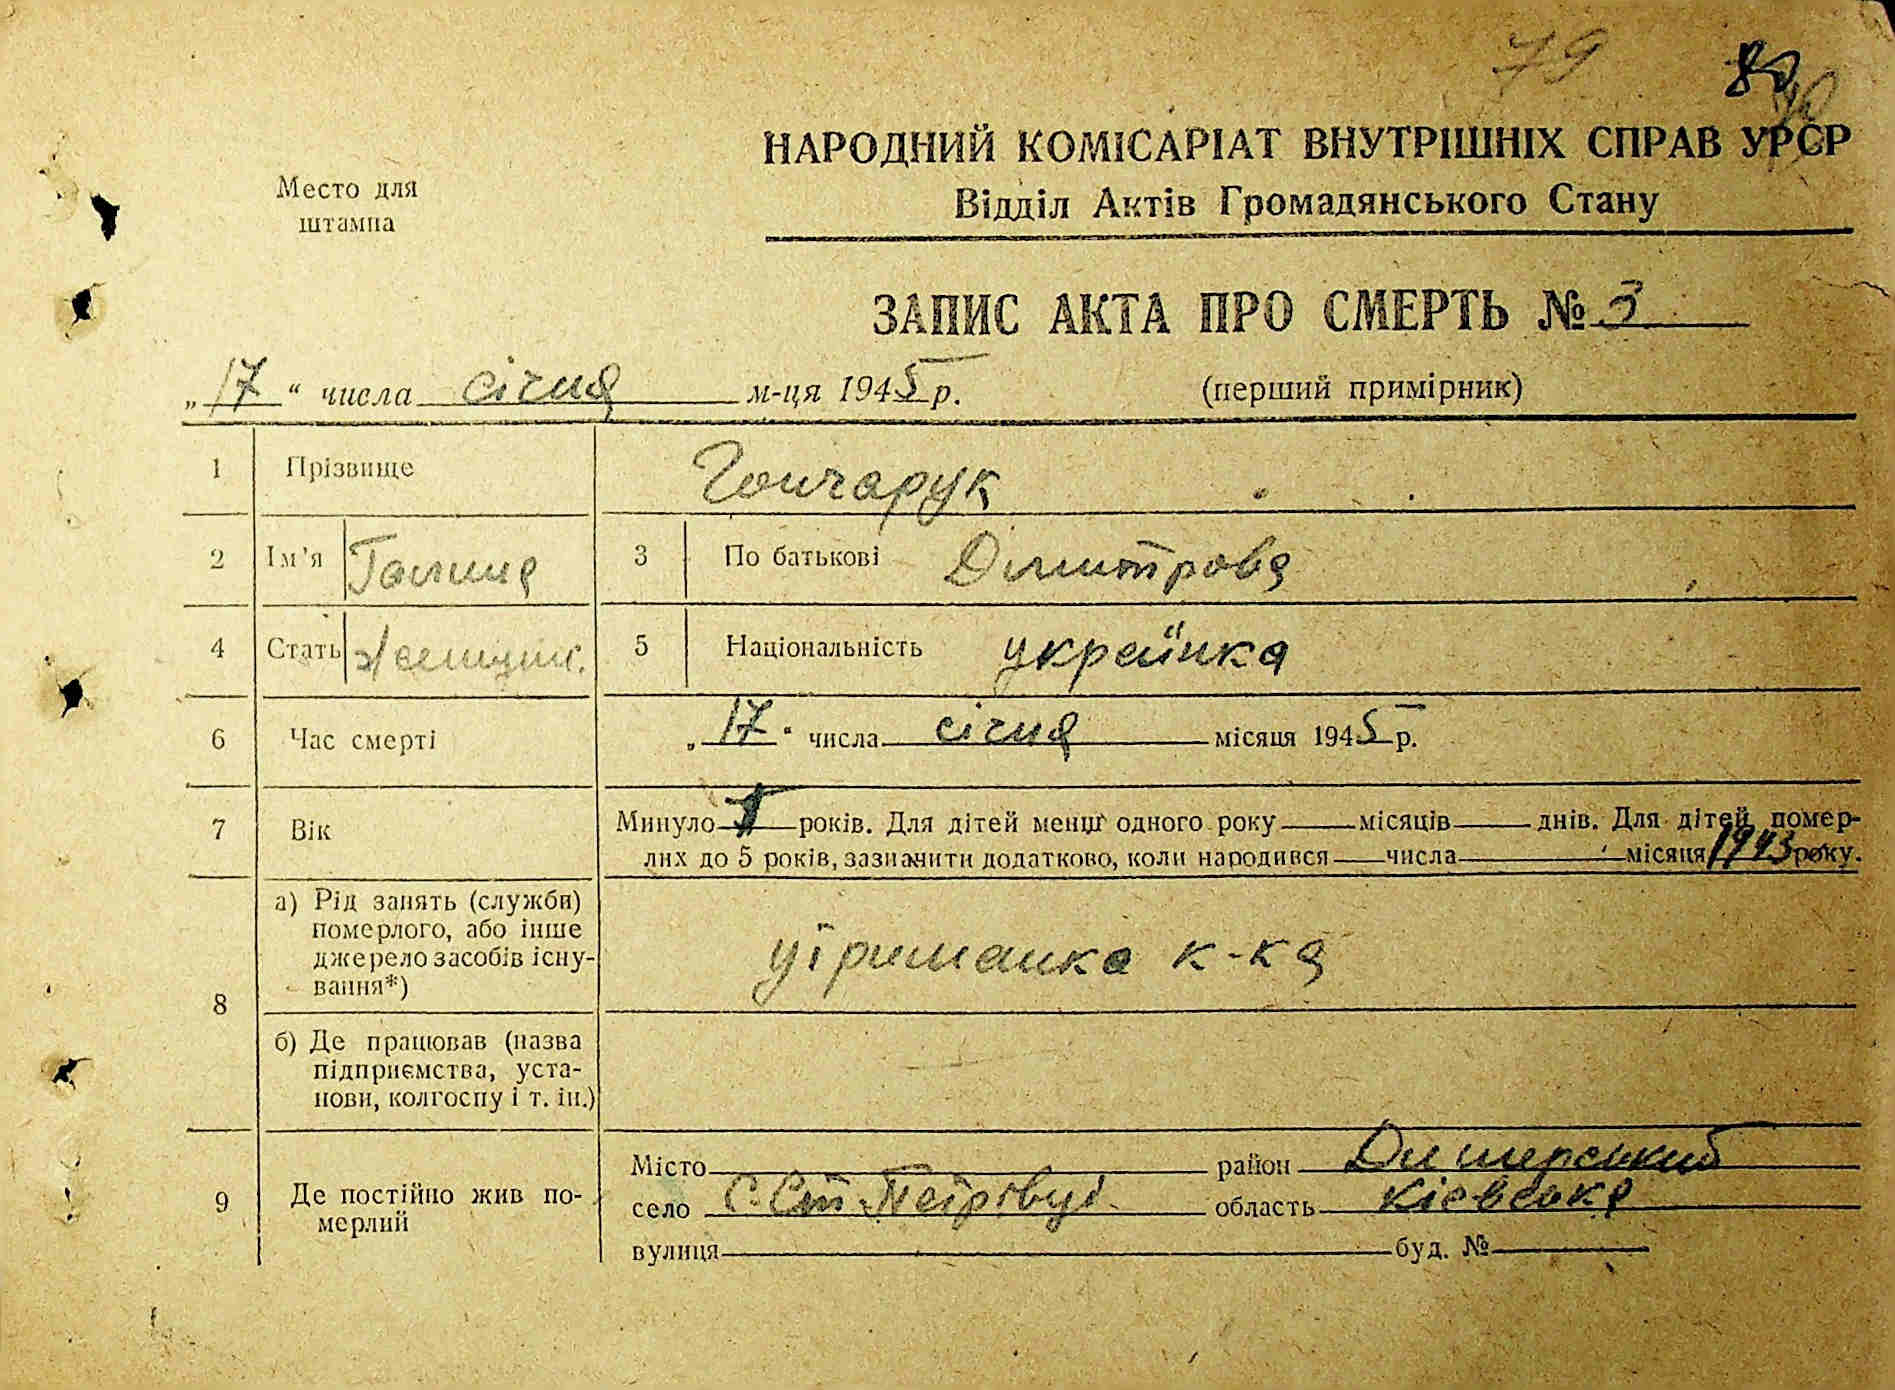 79 80
НАРОДНИЙ КОМІСАРІАТ ВНУТРІШНІХ СПРАВ УРСР
Место для
штампа
Відділ Актів Громадянського Стану
ЗАПИС АКТА ПРО СМЕРТЬ № 3
„17“ числа січня м-ця 1945 р. (перший примірник)
1 Прізвище Гончарук
2 Ім’я Галина 3 По батькові Димитрова
4 Стать 5 Національність украйінка
6 Час смерті „17“ числа січня місяця 1945 р.
7 Вік Минуло років. Для дітей менш одного року місяців днів. Для дітей, помер-
лих до 5 років, зазначити додатково, коли народився числа місяця 1943 року.
8 а) Рід занять (служби)
померлого, або інше
джерело засобів існу-
вання*)
утриманка к-ка
б) Де працював (назва
підприємства, уста-
нови, колгоспу і т. ін.)
9 Де постійно жив по-
мерлий
Місто район Димерський
село с. Ст-Петрівці область Київська
вулиця буд. №